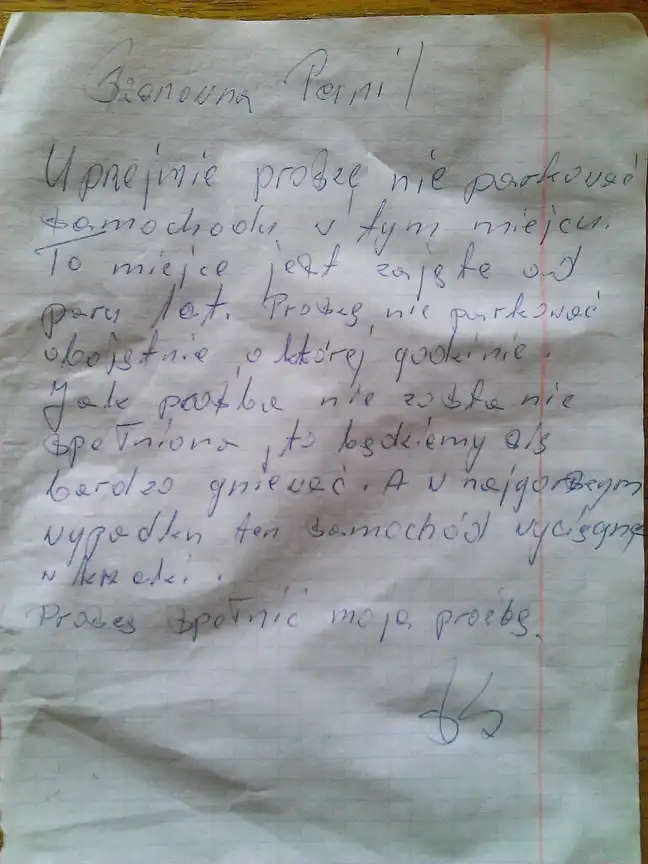 Szanowna Pani!
Uprzejmie proszę nie parkować
samochodu w tym miejscu.
To miejsce jest zajęte od
paru lat. Proszę nie parkować
obojętnie o której godzinie.
Jak prośba nie zosta nie
spełniona, to będziemy się
bardzo gniewać. A w najgorszym
wypadku ten samochód wyciągnę
w krzaki.
Proszę spełnić moją prośbę.